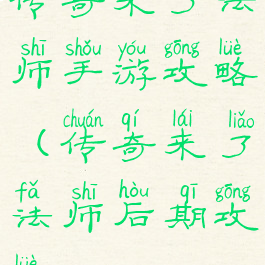 传奇来了法
shī shǒu yóu gōng lüè
师手游攻略
chuán qí lái liǎo
（传奇来了
fǎ shī hòu qī gōng
法师后期攻
lüè